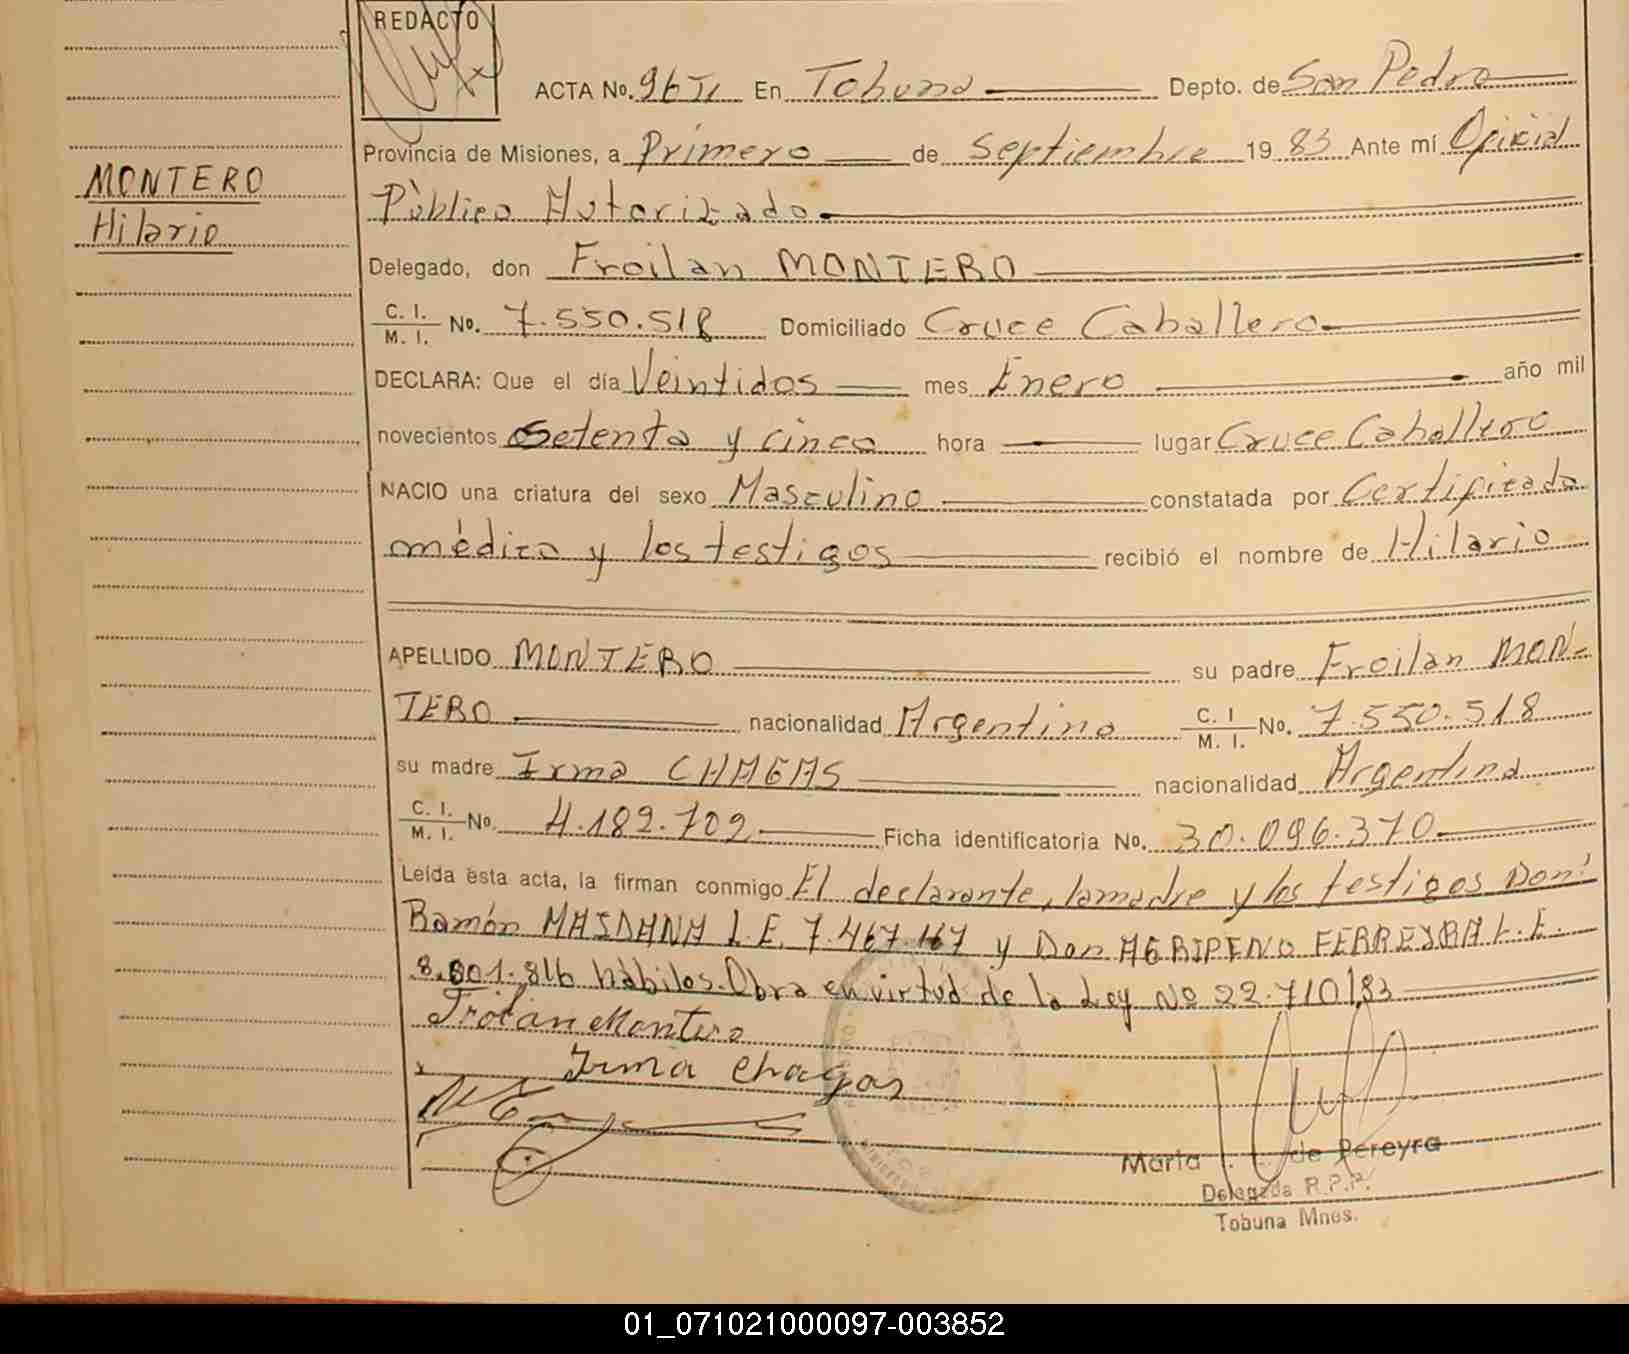 REDACTO
ACTA No. 96 TI En Tobuna Depto. de San Pedro
Provincia de Misiones, a Primero de Septiembre 19 83 Ante mí Oficial
Público Autorizado
MONTERO
Hilario
Delegado, don Froilan MONTERO
C. I. M. I. No. 7.550.518 Domiciliado Cruce Caballero
DECLARA: Que el día Veintidos mes Enero año mil
novecientos Setenta y cinco hora lugar Cruce Caballero
NACIO una criatura del sexo Masculino constatada por Certificado
médico y los testigos recibió el nombre de Hilario
APELLIDO MONTERO su padre Froilan MON-
TERO nacionalidad Argentino C. I M. I. No. 7.550.518
su madre Irma CHAGAS nacionalidad Argentina
C. I. M. I. No. 4.182.702 Ficha identificatoria No. 30.096.370
Leída esta acta, la firman conmigo El declarante, la madre y los testigos Don
Ramón MAIDANA L.E. 7.467.167 y Don AGRIPINO FERREYRA L.E.
8.801.816 hábiles. Obra en virtud de la Ley Nº 22.710/83
Froilan Montero
Irma Chagas
Marta de Pereyra
Delegada R.P.P.
Tobuna Mnes.
01_071021000097-003852